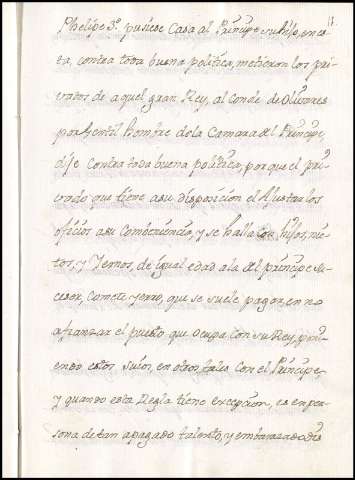 Phelipe 3º. pusiese Casa al Principe su hijo, en es
ta, contra toda buena politica, metieron los pri
vados de aquel gran Rey, al conde de Olivares
por Gentil hombre de la Camara del Principe,
dije contra toda buena politica, porque el pri
vado que tiene a su disposicion el Ajustar los
oficios a su Combeniencia, y se halla con hijos, nie
tos, y Yernos, de igual edad a la del principe su
cesor, Comete yerro, que se suele pagar, en no
afianzar el puesto que ocupa con su Rey, poni
endo estos suios, en otros tales con el Principe,
y quando esta Regla tiene excepcion, es en per
sona de tan apagado talento, y embarazado dis